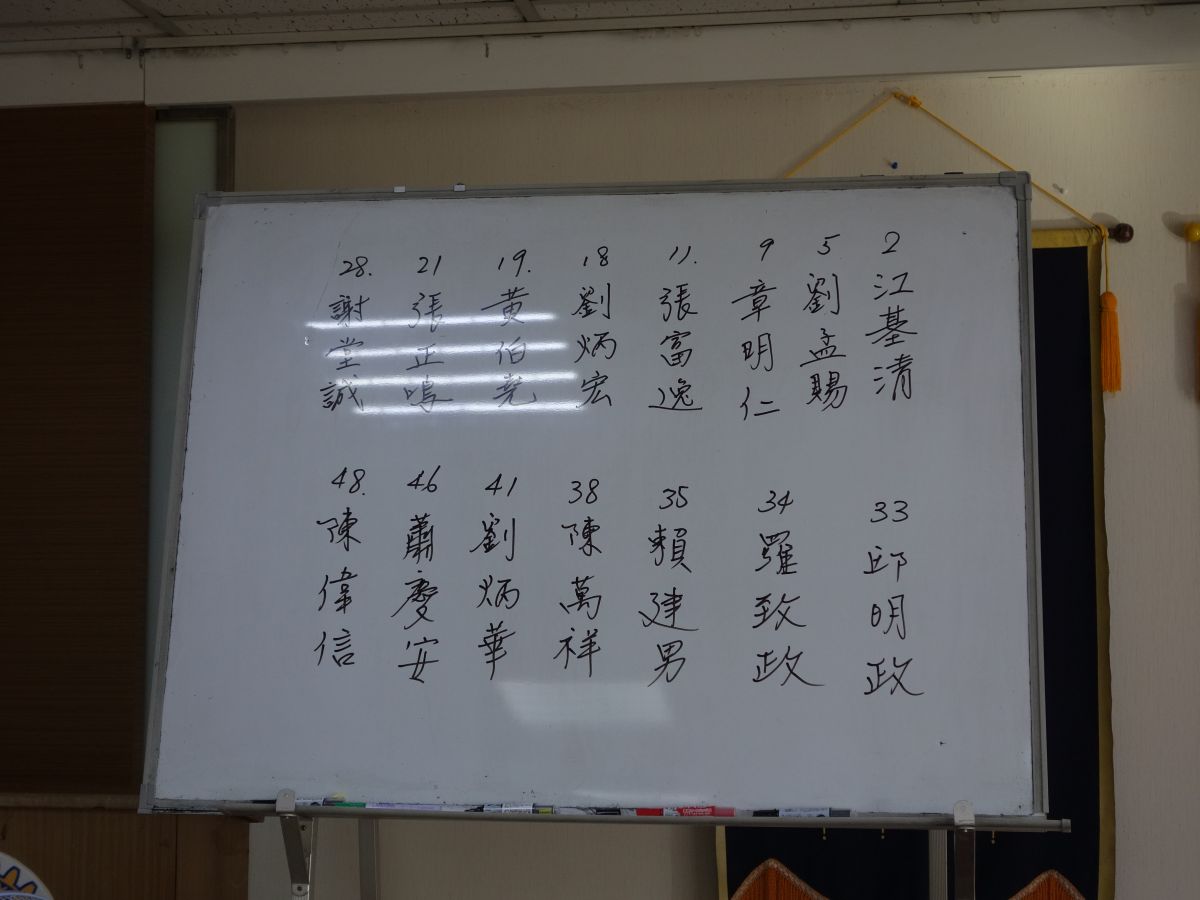 2 江基清
5. 劉孟賜
9 章明仁
11. 張富逸
18 劉炳宏
19. 黃伯堯
21 張正鳴
28. 謝堂誠
33 邱明政
34 羅致政
35 賴建男
38 陳萬祥
41 劉炳華
46 蕭慶安
48. 陳偉信